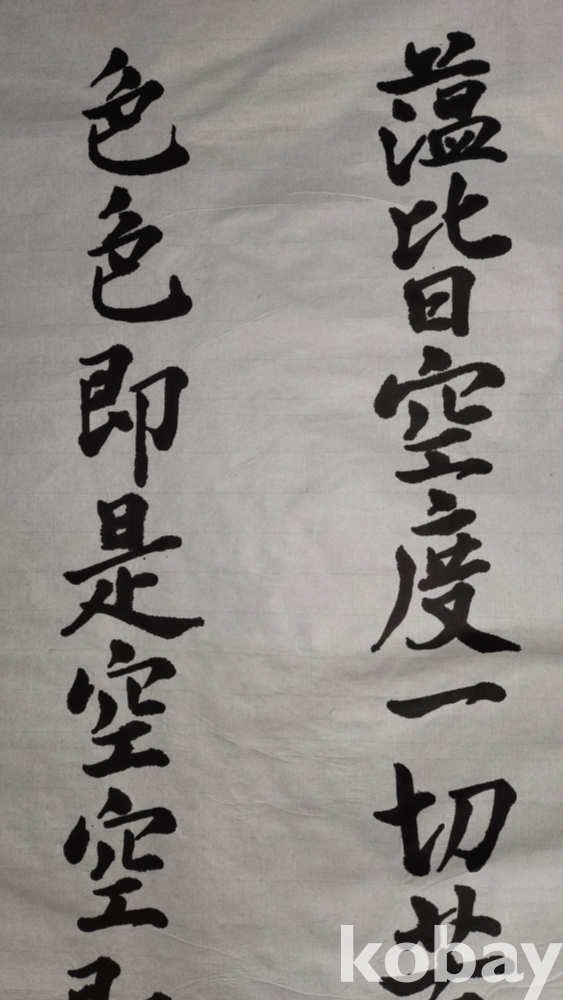 蕰皆空度一切苦
色色即是空空即
kobay